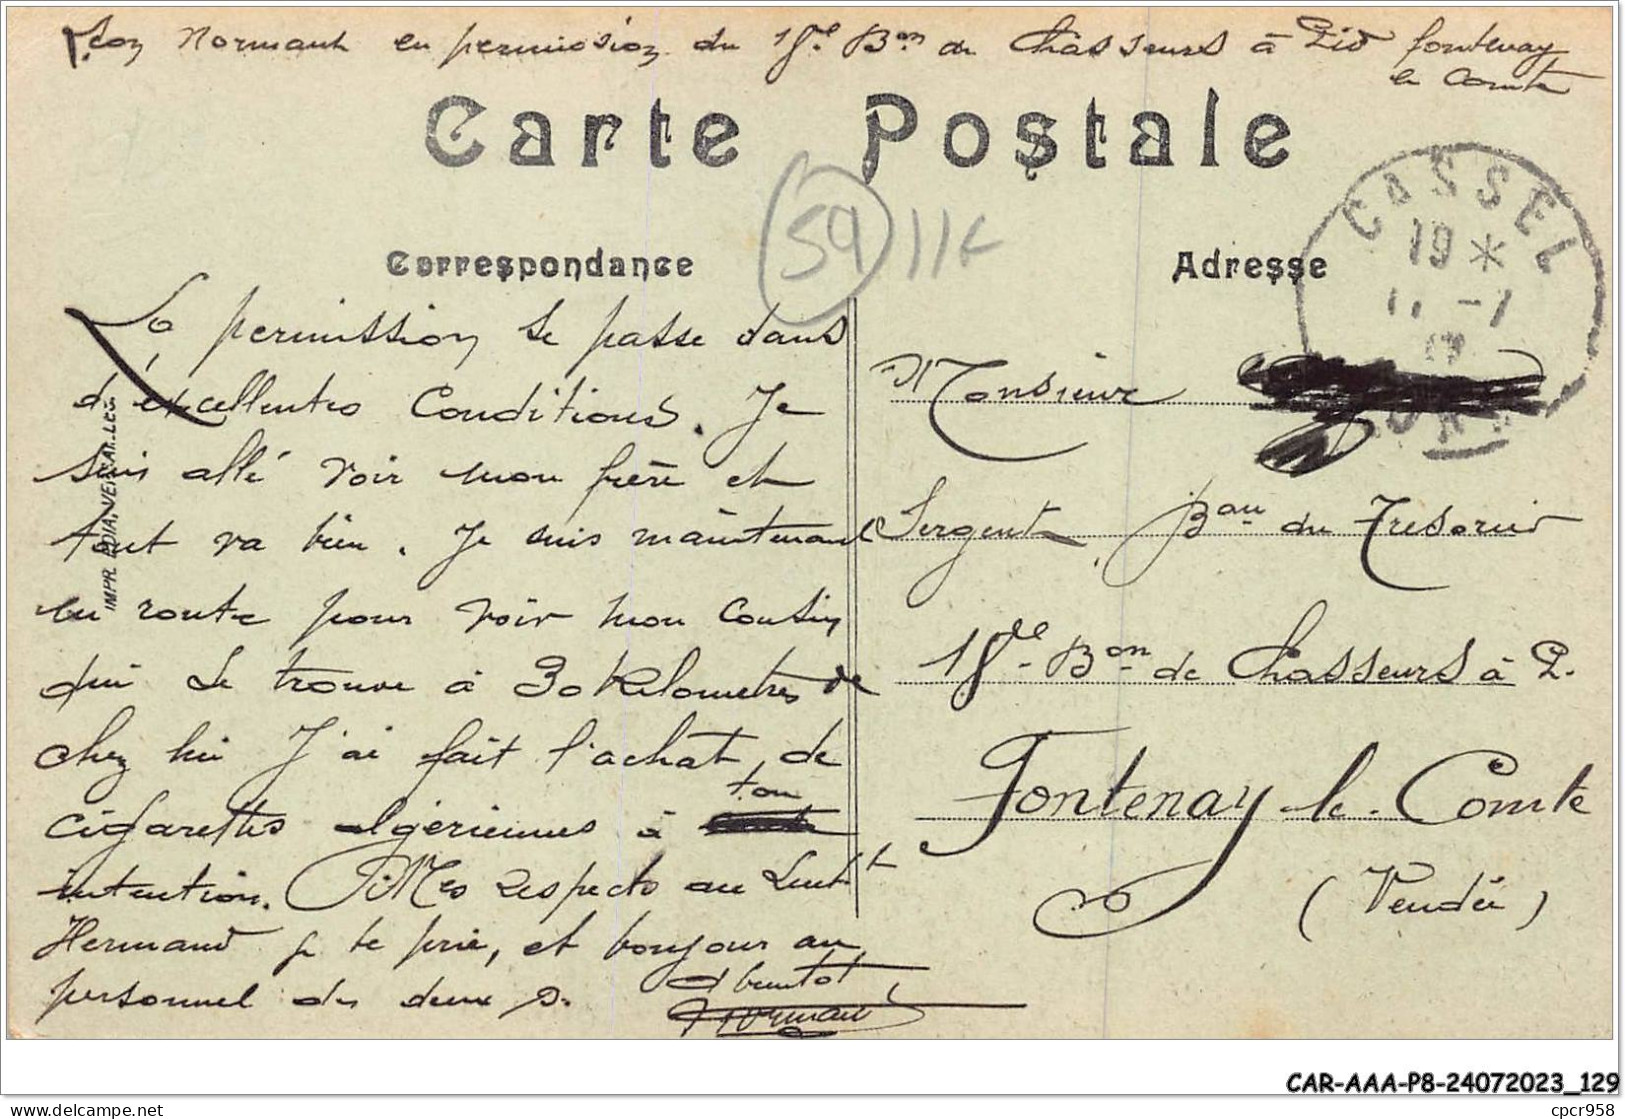 Normant en permission du 18e Bon de Chasseurs à Pied fontenay
le Comte
Carte Postale
59 11K
CASSEL
19 *
11 -7
NORD
Correspondance
Adresse
La permission se passe dans
d'excellentes Conditions. Je
suis allé voir mon frère et
tout va bien. Je suis maintenant
en route pour voir mon Cousin
qui se trouve à 30 kilometres de
chez lui J'ai fait l'achat de
cigarettes algériennes à ton
intention. Mes respects au Lieutt
Hermand je te prie, et bonjour au
personnel des deux
A bientot
Normant
Monsieur
Sergent, Bau du Tresorier
18e Bon de Chasseurs à P.
Fontenay-le-Comte
(Vendée)
IMPR. EDIA, VERSAILLES
CAR-AAA-P8-24072023_129
Delcampe.net
cpcr958